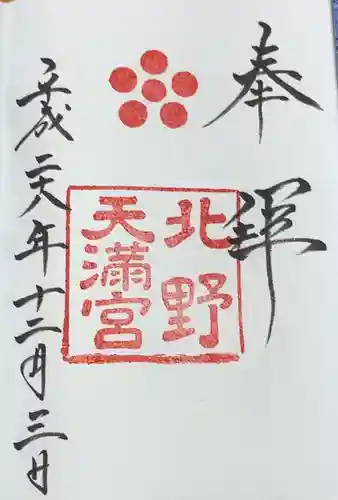 奉拝
北野
天満宮
平成二十八年十二月三日